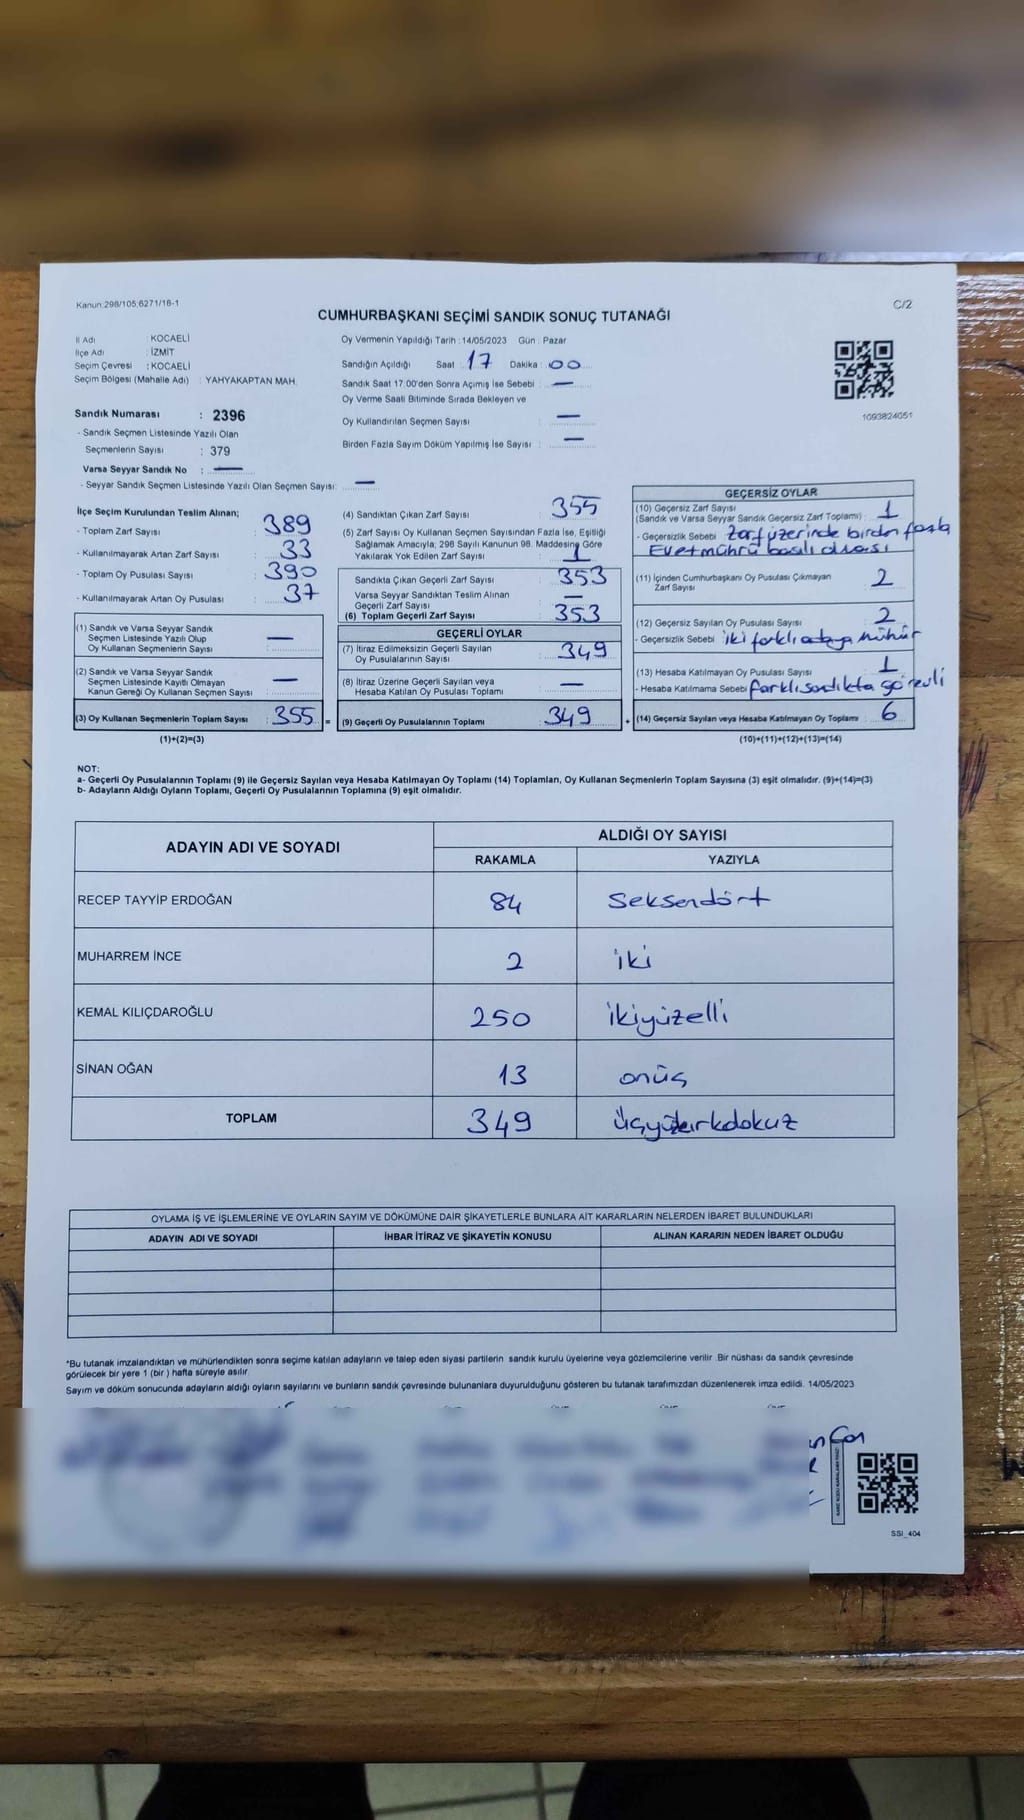 Kanun:298/105;6271/18-1
C/2
CUMHURBAŞKANI SEÇİMİ SANDIK SONUÇ TUTANAĞI
İl Adı : KOCAELİ
İlçe Adı : İZMİT
Seçim Çevresi : KOCAELİ
Seçim Bölgesi (Mahalle Adı) : YAHYAKAPTAN MAH.
Sandık Numarası : 2396
- Sandık Seçmen Listesinde Yazılı Olan
Seçmenlerin Sayısı : 379
Varsa Seyyar Sandık No : —
- Seyyar Sandık Seçmen Listesinde Yazılı Olan Seçmen Sayısı: —
Oy Vermenin Yapıldığı Tarih : 14/05/2023 Gün : Pazar
Sandığın Açıldığı Saat 17 Dakika : 00
Sandık Saat 17.00'den Sonra Açımış İse Sebebi : —
Oy Verme Saati Bitiminde Sırada Bekleyen ve
Oy Kullandırılan Seçmen Sayısı : —
Birden Fazla Sayım Döküm Yapılmış İse Sayısı : —
1093824051
İlçe Seçim Kurulundan Teslim Alınan;
- Toplam Zarf Sayısı : 389
- Kullanılmayarak Artan Zarf Sayısı : 33
- Toplam Oy Pusulası Sayısı : 390
- Kullanılmayarak Artan Oy Pusulası : 37
(1) Sandık ve Varsa Seyyar Sandık
Seçmen Listesinde Yazılı Olup
Oy Kullanan Seçmenlerin Sayısı : —
(2) Sandık ve Varsa Seyyar Sandık
Seçmen Listesinde Kayıtlı Olmayan
Kanun Gereği Oy Kullanan Seçmen Sayısı : —
(3) Oy Kullanan Seçmenlerin Toplam Sayısı : 355 =
(1)+(2)=(3)
(4) Sandıktan Çıkan Zarf Sayısı : 355
(5) Zarf Sayısı Oy Kullanan Seçmen Sayısından Fazla İse, Eşitliği
Sağlamak Amacıyla, 298 Sayılı Kanunun 98. Maddesine Göre
Yakılarak Yok Edilen Zarf Sayısı : 1
Sandıkta Çıkan Geçerli Zarf Sayısı : 353
Varsa Seyyar Sandıktan Teslim Alınan
Geçerli Zarf Sayısı : —
(6) Toplam Geçerli Zarf Sayısı : 353
GEÇERLİ OYLAR
(7) İtiraz Edilmeksizin Geçerli Sayılan
Oy Pusulalarının Sayısı : 349
(8) İtiraz Üzerine Geçerli Sayılan veya
Hesaba Katılan Oy Pusulası Toplamı : —
(9) Geçerli Oy Pusulalarının Toplamı : 349 +
GEÇERSİZ OYLAR
(10) Geçersiz Zarf Sayısı
(Sandık ve Varsa Seyyar Sandık Geçersiz Zarf Toplamı) : 1
- Geçersizlik Sebebi : Zarf üzerinde birden fazla
Evet mührü basılı olması
(11) İçinden Cumhurbaşkanı Oy Pusulası Çıkmayan
Zarf Sayısı : 2
(12) Geçersiz Sayılan Oy Pusulası Sayısı : 2
- Geçersizlik Sebebi : iki farklı adaya mühür
(13) Hesaba Katılmayan Oy Pusulası Sayısı : 1
- Hesaba Katılmama Sebebi : farklı sandıkta görevli
(14) Geçersiz Sayılan veya Hesaba Katılmayan Oy Toplamı : 6
(10)+(11)+(12)+(13)=(14)
NOT:
a- Geçerli Oy Pusulalarının Toplamı (9) ile Geçersiz Sayılan veya Hesaba Katılmayan Oy Toplamı (14) Toplamları, Oy Kullanan Seçmenlerin Toplam Sayısına (3) eşit olmalıdır. (9)+(14)=(3)
b- Adayların Aldığı Oyların Toplamı, Geçerli Oy Pusulalarının Toplamına (9) eşit olmalıdır.
ADAYIN ADI VE SOYADI
ALDIĞI OY SAYISI
RAKAMLA YAZIYLA
RECEP TAYYİP ERDOĞAN 84 Seksendört
MUHARREM İNCE 2 iki
KEMAL KILIÇDAROĞLU 250 ikiyüzelli
SİNAN OĞAN 13 onüç
TOPLAM 349
OYLAMA İŞ VE İŞLEMLERİNE VE OYLARIN SAYIM VE DÖKÜMÜNE DAİR ŞİKAYETLERLE BUNLARA AİT KARARLARIN NELERDEN İBARET BULUNDUKLARI
ADAYIN ADI VE SOYADI İHBAR İTİRAZ VE ŞİKAYETİN KONUSU ALINAN KARARIN NEDEN İBARET OLDUĞU
*Bu tutanak imzalandıktan ve mühürlendikten sonra seçime katılan adayların ve talep eden siyasi partilerin sandık kurulu üyelerine veya gözlemcilerine verilir .Bir nüshası da sandık çevresinde
görülecek bir yere 1 (bir ) hafta süreyle asılır.
Sayım ve döküm sonucunda adayların aldığı oyların sayılarını ve bunların sandık çevresinde bulunanlara duyurulduğunu gösteren bu tutanak tarafımızdan düzenlenerek imza edildi. 14/05/2023
SSI_404